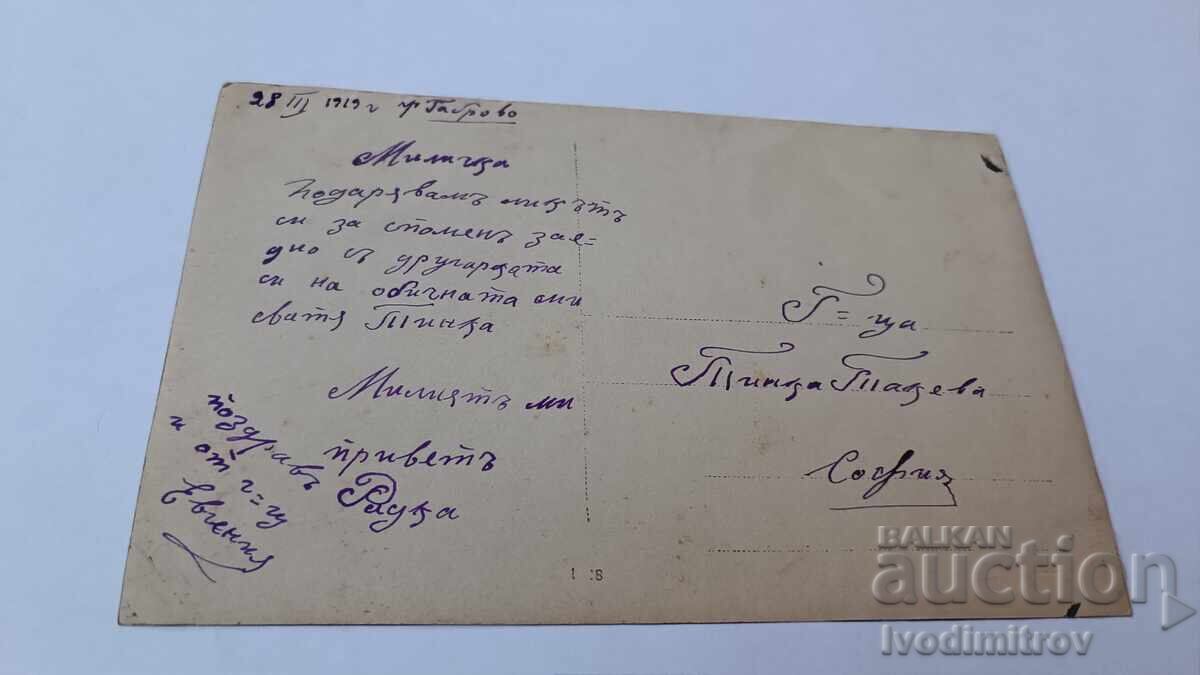 28 III 1919 г гр Габрово
Миличка
Подарявамъ ликътъ
си за споменъ зае=
дно съ другарката
си на обичната ми
сватя Тинка
Милиятъ ми
приветъ
Радка
поздравъ
и от г=ца
Евгения
Г=ца
Тинка Такева
София
BALKAN
auction
Ivodimitrov